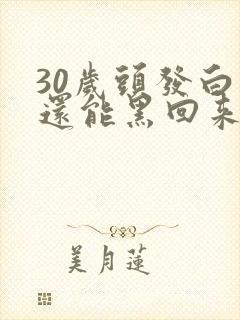 30歲頭發白
還能黑回來
美月蓮